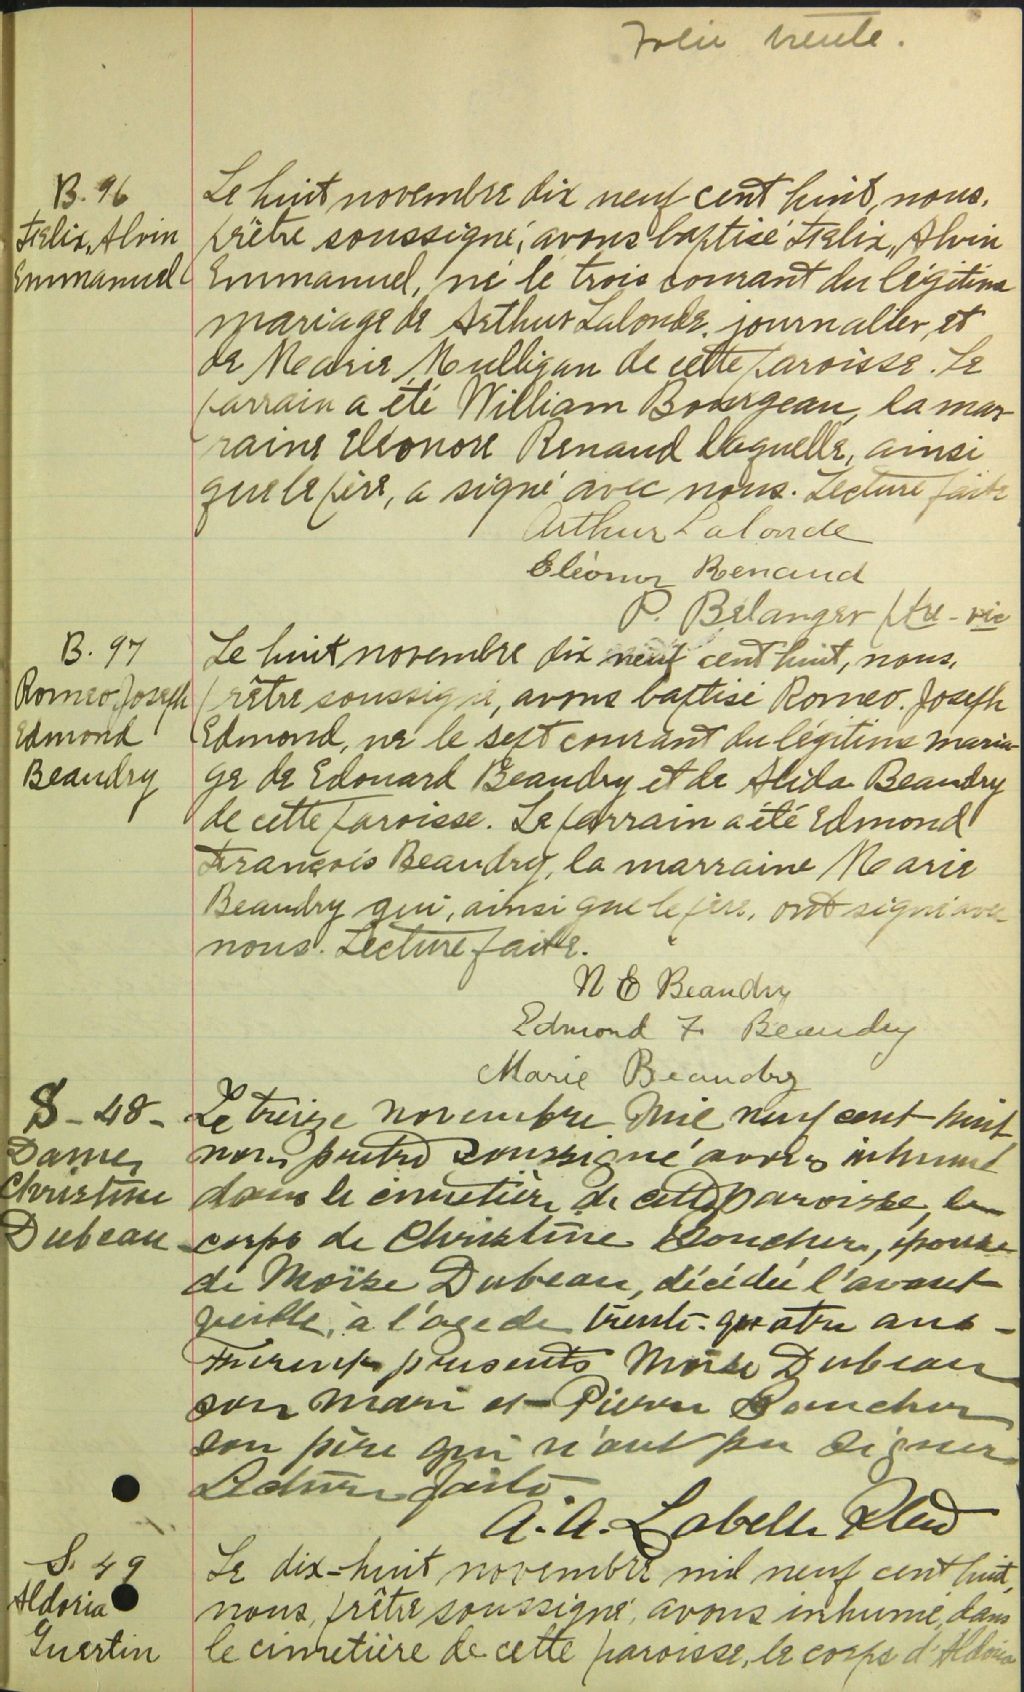 Folio trente.
B. 96
Félix, Alvin
Emmanuel
Le huit novembre dix neuf cent huit, nous,
prêtre soussigné, avons baptisé Félix, Alvin
Emmanuel, né le trois courant du légitime
mariage de Arthur Lalonde, journalier, et
de Marie Mulligan de cette paroisse. Le
parrain a été William Bourgeau, la mar-
raine Eléonore Renaud laquelle, ainsi
que le père, a signé avec nous. Lecture faite
Arthur Lalonde
Eléonor Renaud
P. Bélanger ptre-vic
B. 97
Romeo Joseph
Edmond
Beaudry
Le huit novembre dix neuf cent huit, nous,
prêtre soussigné, avons baptisé Romeo. Joseph
Edmond, né le sept courant du légitime maria-
ge de Edouard Beaudry et de Alida Beaudry
de cette paroisse. Le parrain a été Edmond
François Beaudry, la marraine Marie
Beaudry qui, ainsi que le père, ont signé avec
nous. Lecture faite.
N E Beaudry
Edmond F. Beaudry
Marie Beaudry
S - 48 -
Dame
Christine
Dubeau
Le treize novembre mil neuf cent huit,
nous prêtre soussigné avons inhumé
dans le cimetière de cette paroisse, le
corps de Christine Boucher, épouse
de Moïse Dubeau, décédée l'avant
veille, à l'age de trente-quatre ans -
Furent présents Moïse Dubeau
son mari et Pierre Boucher
son père qui n'ont pu signer
Lecture faite.
A. A. Labelle
S. 49
Aldoria
Guertin
Le dix-huit novembre mil neuf cent huit,
nous, prêtre soussigné, avons inhumé, dans
le cimetière de cette paroisse, le corps d'Aldoria